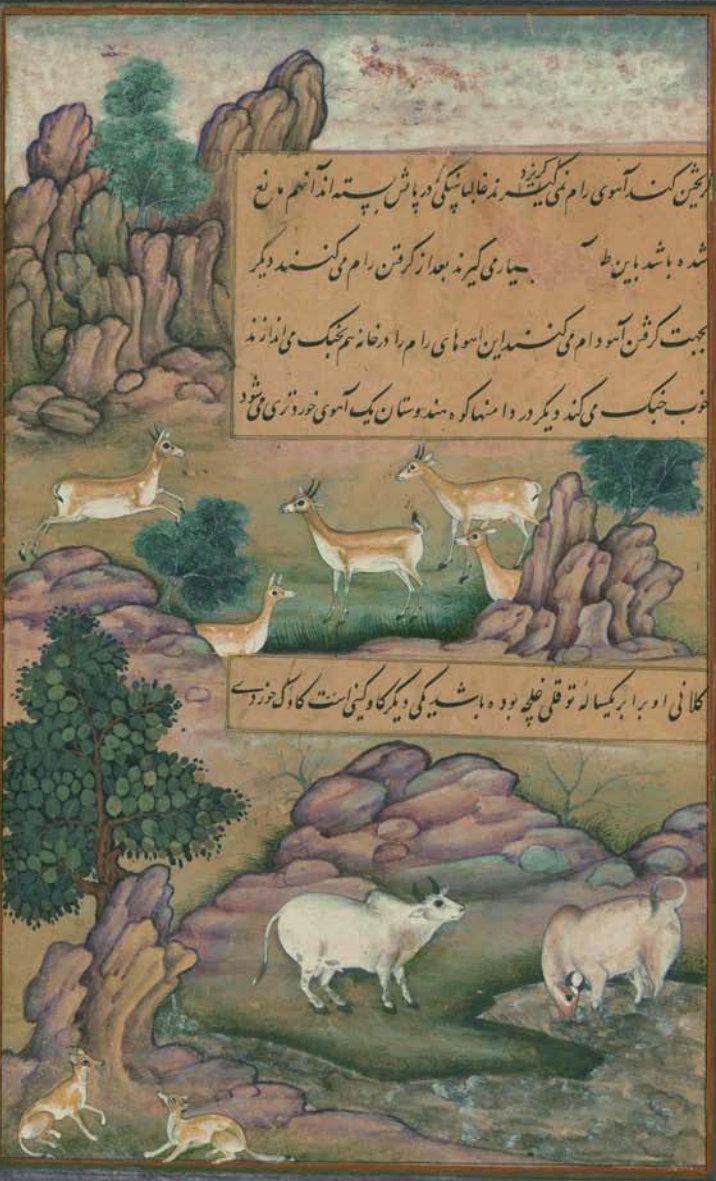 گریختن کند آهوی رام نمی گریزد گیرند غالبا سنگی در پاش بسته اند آنهم مانع
شده باشد باین بسیار می گیرند بعد از گرفتن رام می کنند دیگر
بجهت گرفتن آهو دام می کنند این اهوهای رام را در خانه هم بجنک می اندازند
خوب جنک می کند دیگر در دامنهاء کوه هندوستان یک آهوی خوردتری می شود
کلانی او برابر یکساله توقلی غلچه بوده باشد یکی دیگر کاو کینی است کاوک خوردی